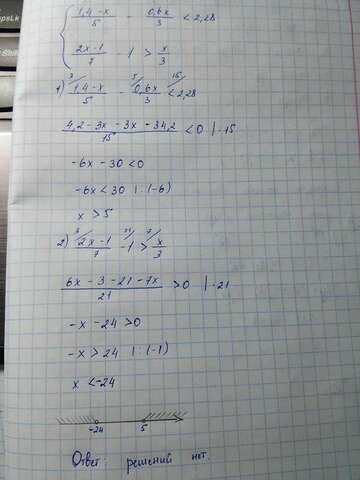 psLk
{ (1,4-x)/5 - 0,6x/3 < 2,28
(2x-1)/7 - 1 > x/3
1) ³/ (1,4-x)/5 - ⁵/ 0,6x/3 ¹⁵/ < 2,28
(4,2-3x-3x-34,2)/15 < 0 | ·15
-6x-30<0
-6x<30 | :(-6)
x>5
2) ³/ (2x-1)/7 - ²¹/ 1 > ⁷/ x/3
(6x-3-21-7x)/21 > 0 | ·21
-x-24>0
-x>24 | :(-1)
x<-24
-24 5
Ответ: решений нет.